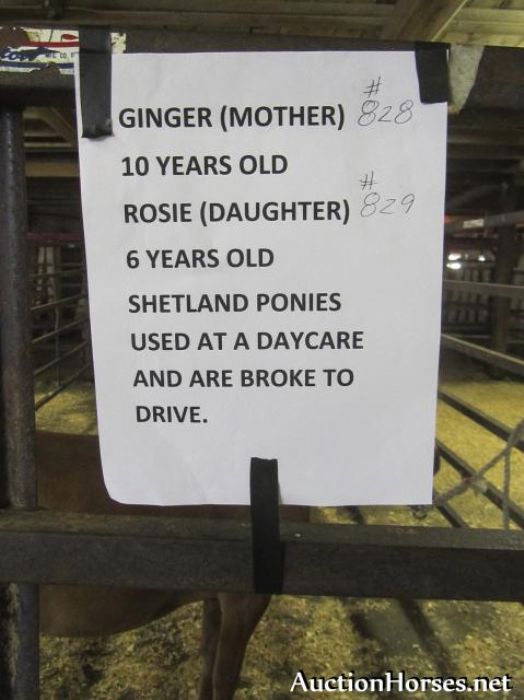 GINGER (MOTHER) # 828
10 YEARS OLD
ROSIE (DAUGHTER) # 829
6 YEARS OLD
SHETLAND PONIES
USED AT A DAYCARE
AND ARE BROKE TO
DRIVE.
AuctionHorses.net